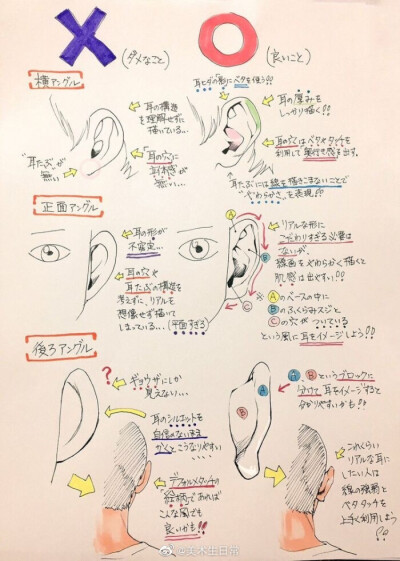 (ダメなこと)
(良いこと)
横アングル
耳の構造
を理解せずに
描いている…
「耳たぶ」が
無い
「耳の穴」に
立体感が
無い…
耳ヒダの影にベタを使う!!
耳の厚みを
しっかり描く!!
耳の穴はベタやタッチを
利用して奥行き感を出す。
耳たぶには線を描きこまないことで
"やわらかさ"を表現!!
正面アングル
耳の形が
不安定…
耳の穴や
耳たぶの構造を
考えずに、リアルを
想像せず描いて
しまっている…
(平面すぎる)
A
B
C
リアルな形に
こだわりすぎる必要は
ないが、
線画をやわらかく描くと
肌感は出やすい!!
Aのベースの中に
Bのふくらみとスジと
Cの穴がついている
という風に耳をイメージしよう!!
後ろアングル
?
ギョウザにしか
見えない…
耳のシルエットを
自信のないまま
かくと、こうなりやすい
デフォルメタッチの
絵柄であれば
こんな風でも
良いかも!!
A
B
A、Bというブロックに
分けて、耳をイメージすると
分かりやすいかも!!
これくらい
リアルな耳に
したい人は
線の強弱と
ベタ、タッチを
上手く利用しよう
!!
@美术生日常